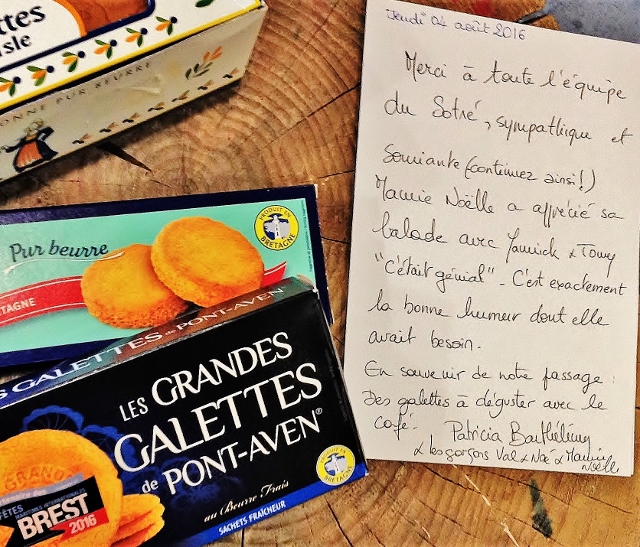 ettes
sle
ONNE PUR BEURRE
Pur beurre
TAGNE
PRODUIT EN
BRETAGNE
S GALETTES DE PONT-AVEN
LES GRANDES
GALETTES
de PONT-AVEN®
au Beurre Frais
SACHETS FRAÎCHEUR
PRODUIT EN
BRETAGNE
GRANDE
FÊTES
MARITIMES INTERNATIONALES
BREST
2016
Jeudi 04 août 2016
Merci à toute l'équipe
du Sotré, sympathique et
souriante (continuez ainsi!)
Mamie Noëlle a apprécié sa
balade avec Yannick & Tomy
"C'était génial". C'est exactement
la bonne humeur dont elle
avait besoin.
En souvenir de notre passage :
Des galettes à déguster avec le
café. Patricia Barthélemy
& les garçons Val & Noé & Mamie
Noëlle